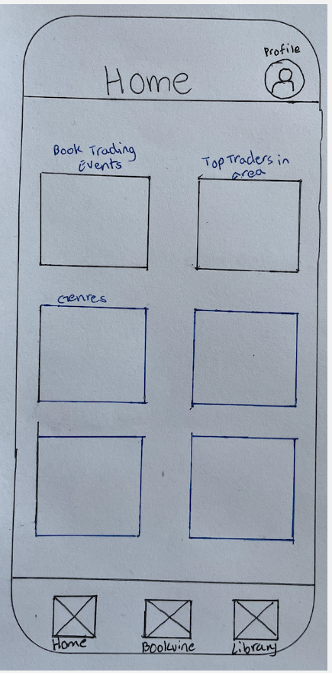 Profile
Home
Book Trading
Events
Top Traders in
area
Genres
Home
Bookvine
Library